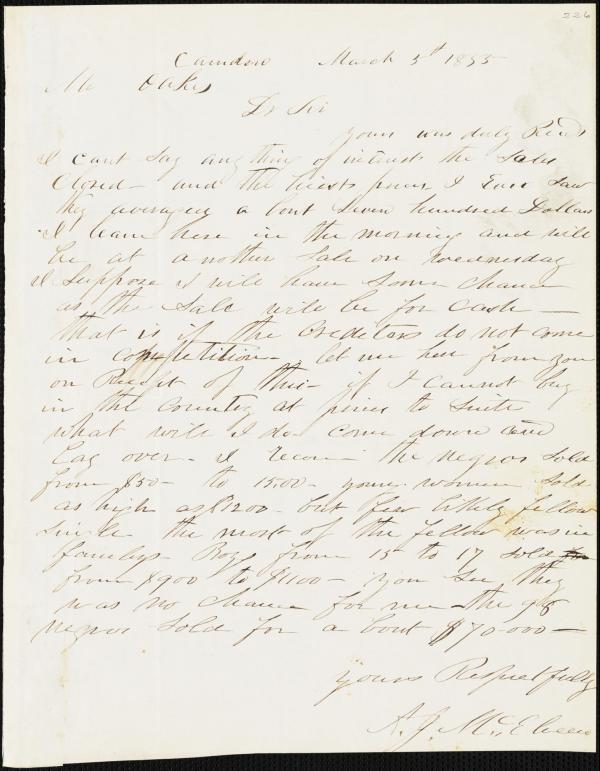 226
Camden March 5th 1855
Mr Oakes
Dr Sir
yours was duly Recd
I cant Say any thing of interest the Sales
Closed - and the hiests prices I Ever Saw
they averaged a bout Seven hundred Dollars
I leave here in the morning and will
be at a nother Sale on Wednesday
I Suppose I will have Some chance
as the Sale will be for Cash -
that is if the Creditors do not come
in competition - let me hear from you
on Receipt of this - if I cannot buy
in the country at prices to Suite
what will I do - come down and
Lay over - I the negros Sold
from $50 - to 1500 - young women Sold
as high as $1200 - but few likely fellow
Single the most of the fellow was in
familys - Boys from 15 to 17 Sold
from $900 to $1100 - you See they
was no chance for me - the 98
negros Sold for a bout $70-000 -
yours Respectfully
A. J. McElveen